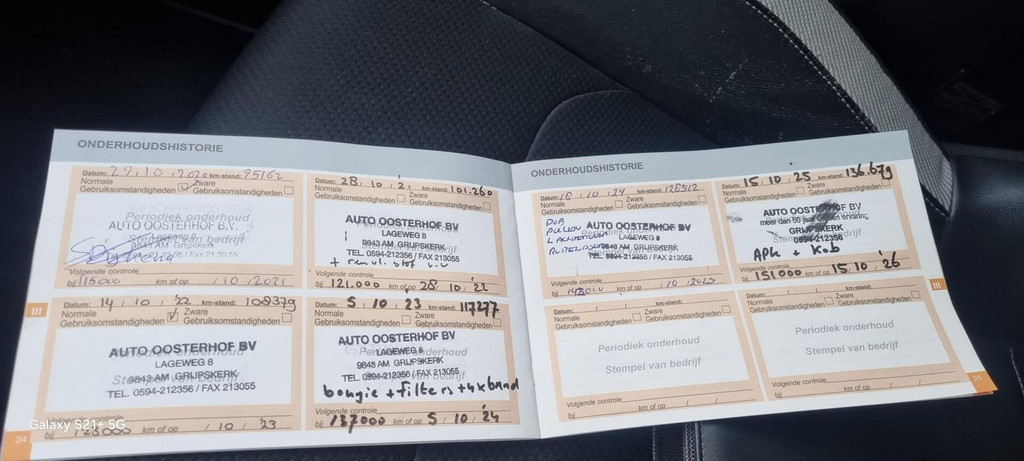 ONDERHOUDSHISTORIE
Datum: 29, 10, 2020 km-stand: 95162
Normale Gebruiksomstandigheden Zware Gebruiksomstandigheden
Periodiek onderhoud
AUTO OOSTERHOF B.V.
9843 AM Grijpskerk
Stempel van bedrijf
Volgende controle
bij 115000 / 10 / 2021
Datum: 28, 10, 21 km-stand: 101.260
Normale Gebruiksomstandigheden Zware Gebruiksomstandigheden
AUTO OOSTERHOF BV
LAGEWEG 8
9843 AM GRIJPSKERK
TEL. 0594-212356 / FAX 213055
Volgende controle
bij 121.000 km of op 28 / 10 / 22
Datum: 14 / 10 / '22 km-stand: 108379
Normale Gebruiksomstandigheden Zware Gebruiksomstandigheden
Periodiek onderhoud
AUTO OOSTERHOF BV
LAGEWEG 8
Stempel van bedrijf
9843 AM GRIJPSKERK
TEL. 0594-212356 / FAX 213055
Volgende controle
bij km of op / 10 / '23
Datum: 5 / 10 / 23 km-stand: 117277
Normale Gebruiksomstandigheden Zware Gebruiksomstandigheden
AUTO OOSTERHOF BV
Periodiek onderhoud
LAGEWEG 8
9843 AM GRIJPSKERK
TEL. 0594-212356 / FAX 213055
bougie + filters + 4x band
Volgende controle
bij 137000 km of op 5 / 10 / '24
24
III
ONDERHOUDSHISTORIE
Datum: / 10 / 24 km-stand: 128512
Normale Gebruiksomstandigheden Zware Gebruiksomstandigheden
AUTO OOSTERHOF BV
LAGEWEG 8
9843 AM GRIJPSKERK
TEL. 0594-212356 / FAX 213055
Volgende controle
bij km of op / 10 / 2025
Datum: 15, 10, 25 km-stand: 136.679
Normale Gebruiksomstandigheden Zware Gebruiksomstandigheden
AUTO OOSTERHOF BV
meer dan 50 jaar ervaring
GRIJPSKERK
0594-212356
APK + Kob
Volgende controle
bij 151000 km of op 15 / 10 / '26
Datum: / / km-stand:
Normale Gebruiksomstandigheden Zware Gebruiksomstandigheden
Periodiek onderhoud
Stempel van bedrijf
Volgende controle
bij km of op / /
Datum: / / km-stand:
Normale Gebruiksomstandigheden Zware Gebruiksomstandigheden
Periodiek onderhoud
Stempel van bedrijf
Volgende controle
bij km of op / /
III
25
Galaxy S21+ 5G